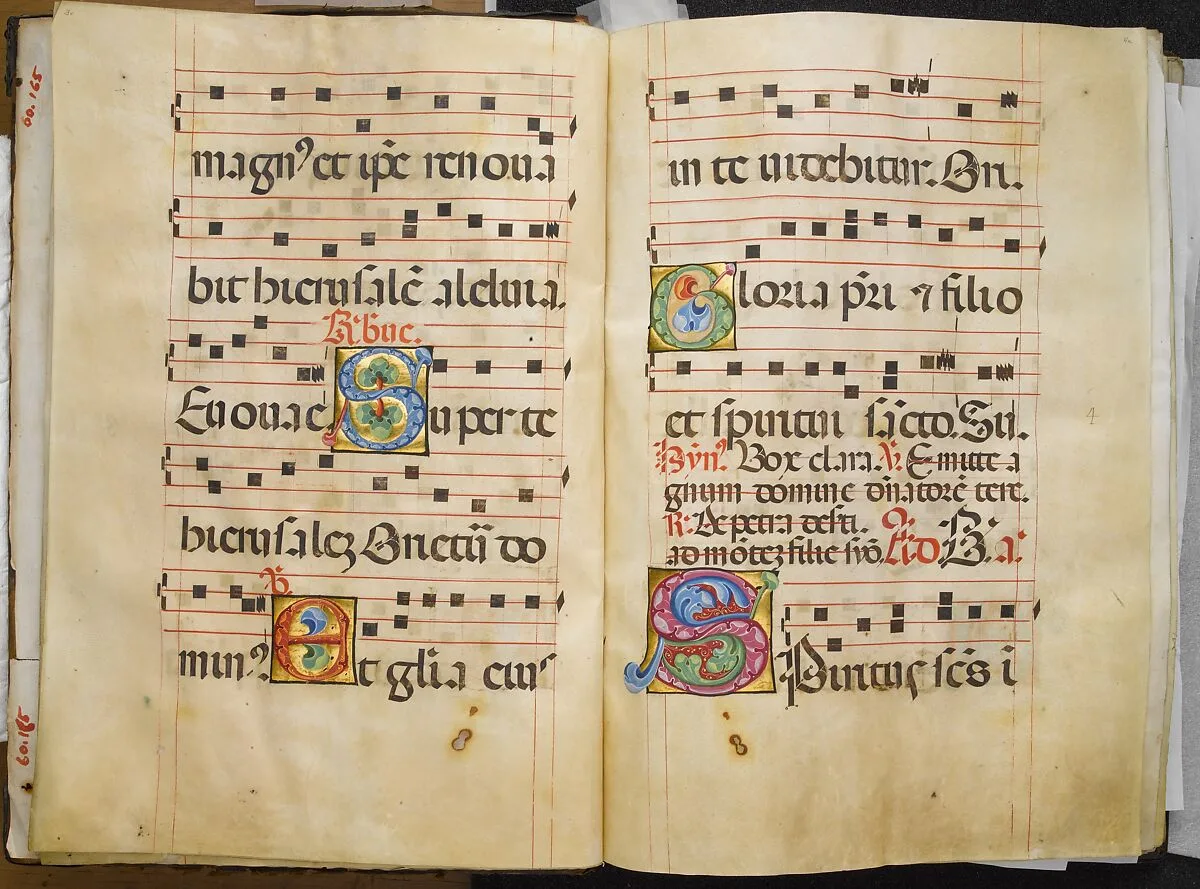 60.165
magnꝰ et ip̄e renoua
bit hierusalē alleluia.
℟. b̄ue.
Euouae Super te
hierusaleꝫ Orietur̄ do
℣.
minꝰ. Et glīa eius
60.165
in te uidebitur. Ori.
Gloria pr̄i ⁊ filio
et spiritui sācto. Su.
Hymꝰ. Vox clara. ℣. Emitte a
gnum domine dn̄atorē terre.
℟: De petra deserti.
ad mōteꝫ filie syō. Ad B. a.
4
Spiritus scs̄ i